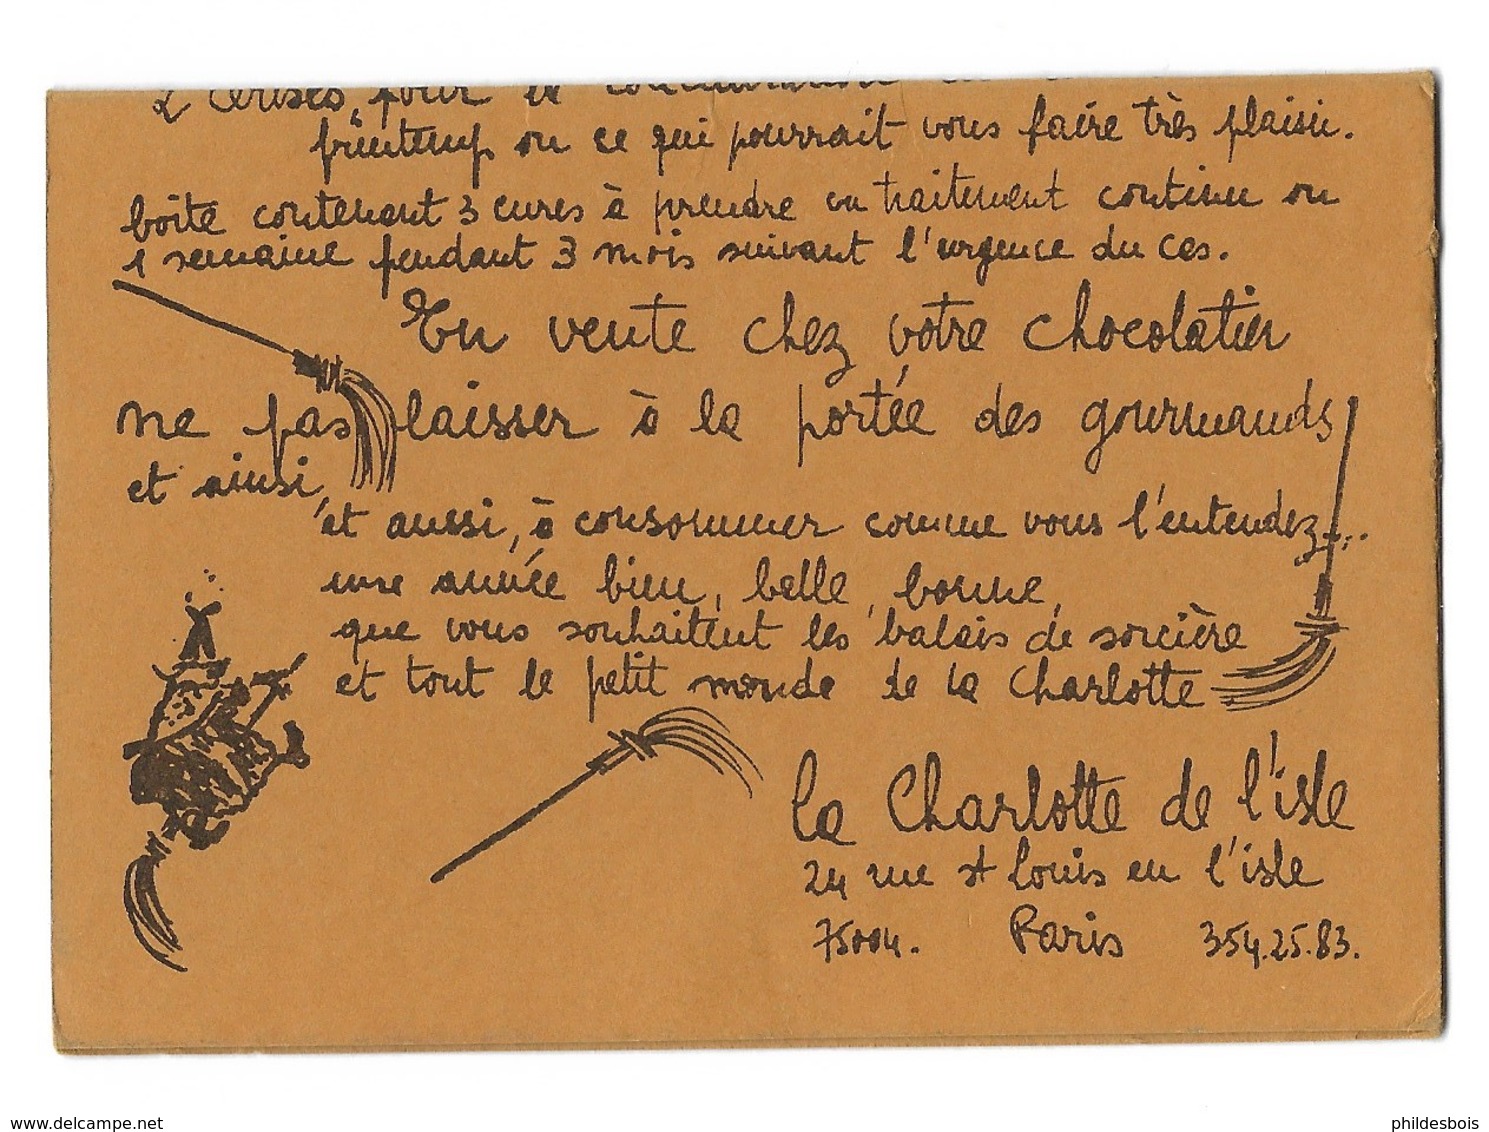 2 cerises, pour
printemps ou ce qui pourrait vous faire très plaisir.
boîte contenant 3 cures à prendre en traitement continu ou
1 semaine pendant 3 mois suivant l'urgence du cas.
En vente chez votre chocolatier
ne pas laisser à la portée des gourmands
et ainsi,
et aussi, à consommer comme vous l'entendez...
une année bien, belle, bonne,
que vous souhaitent les balais de sorcière
et tout le petit monde de la Charlotte
la Charlotte de l'isle
24 rue st Louis en l'isle
75004. Paris 354.25.83.
www.delcampe.net
phildesbois